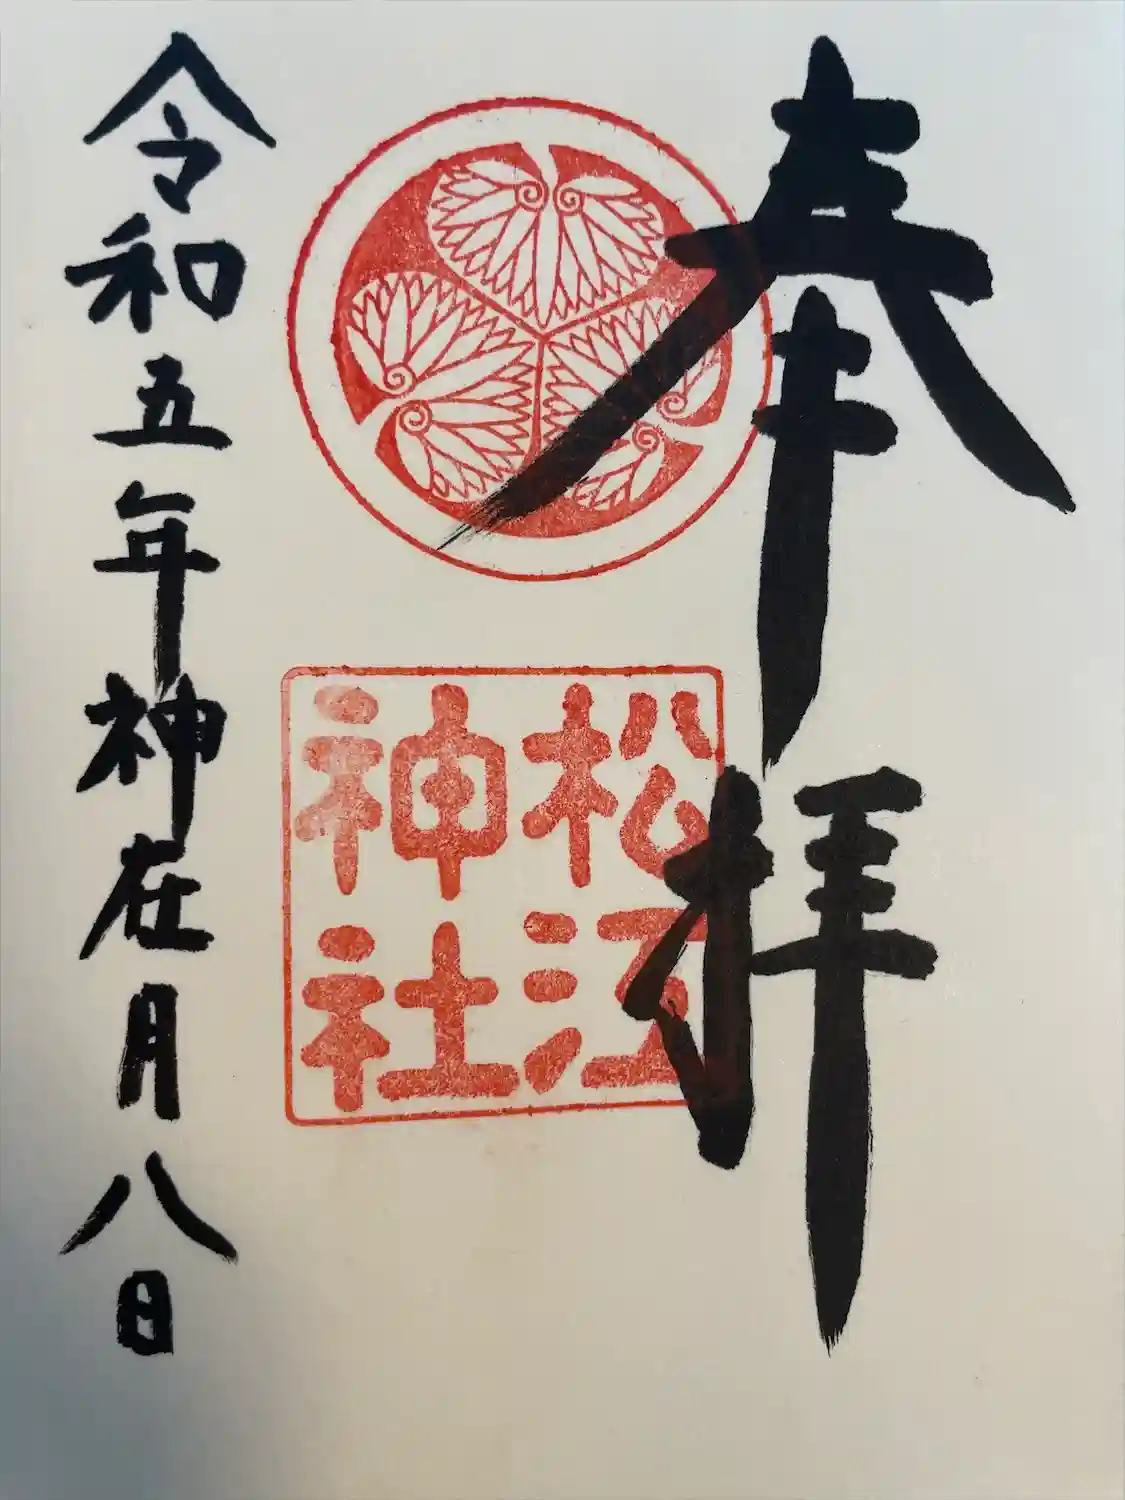 奉拝
松江
神社
令和五年神在月八日